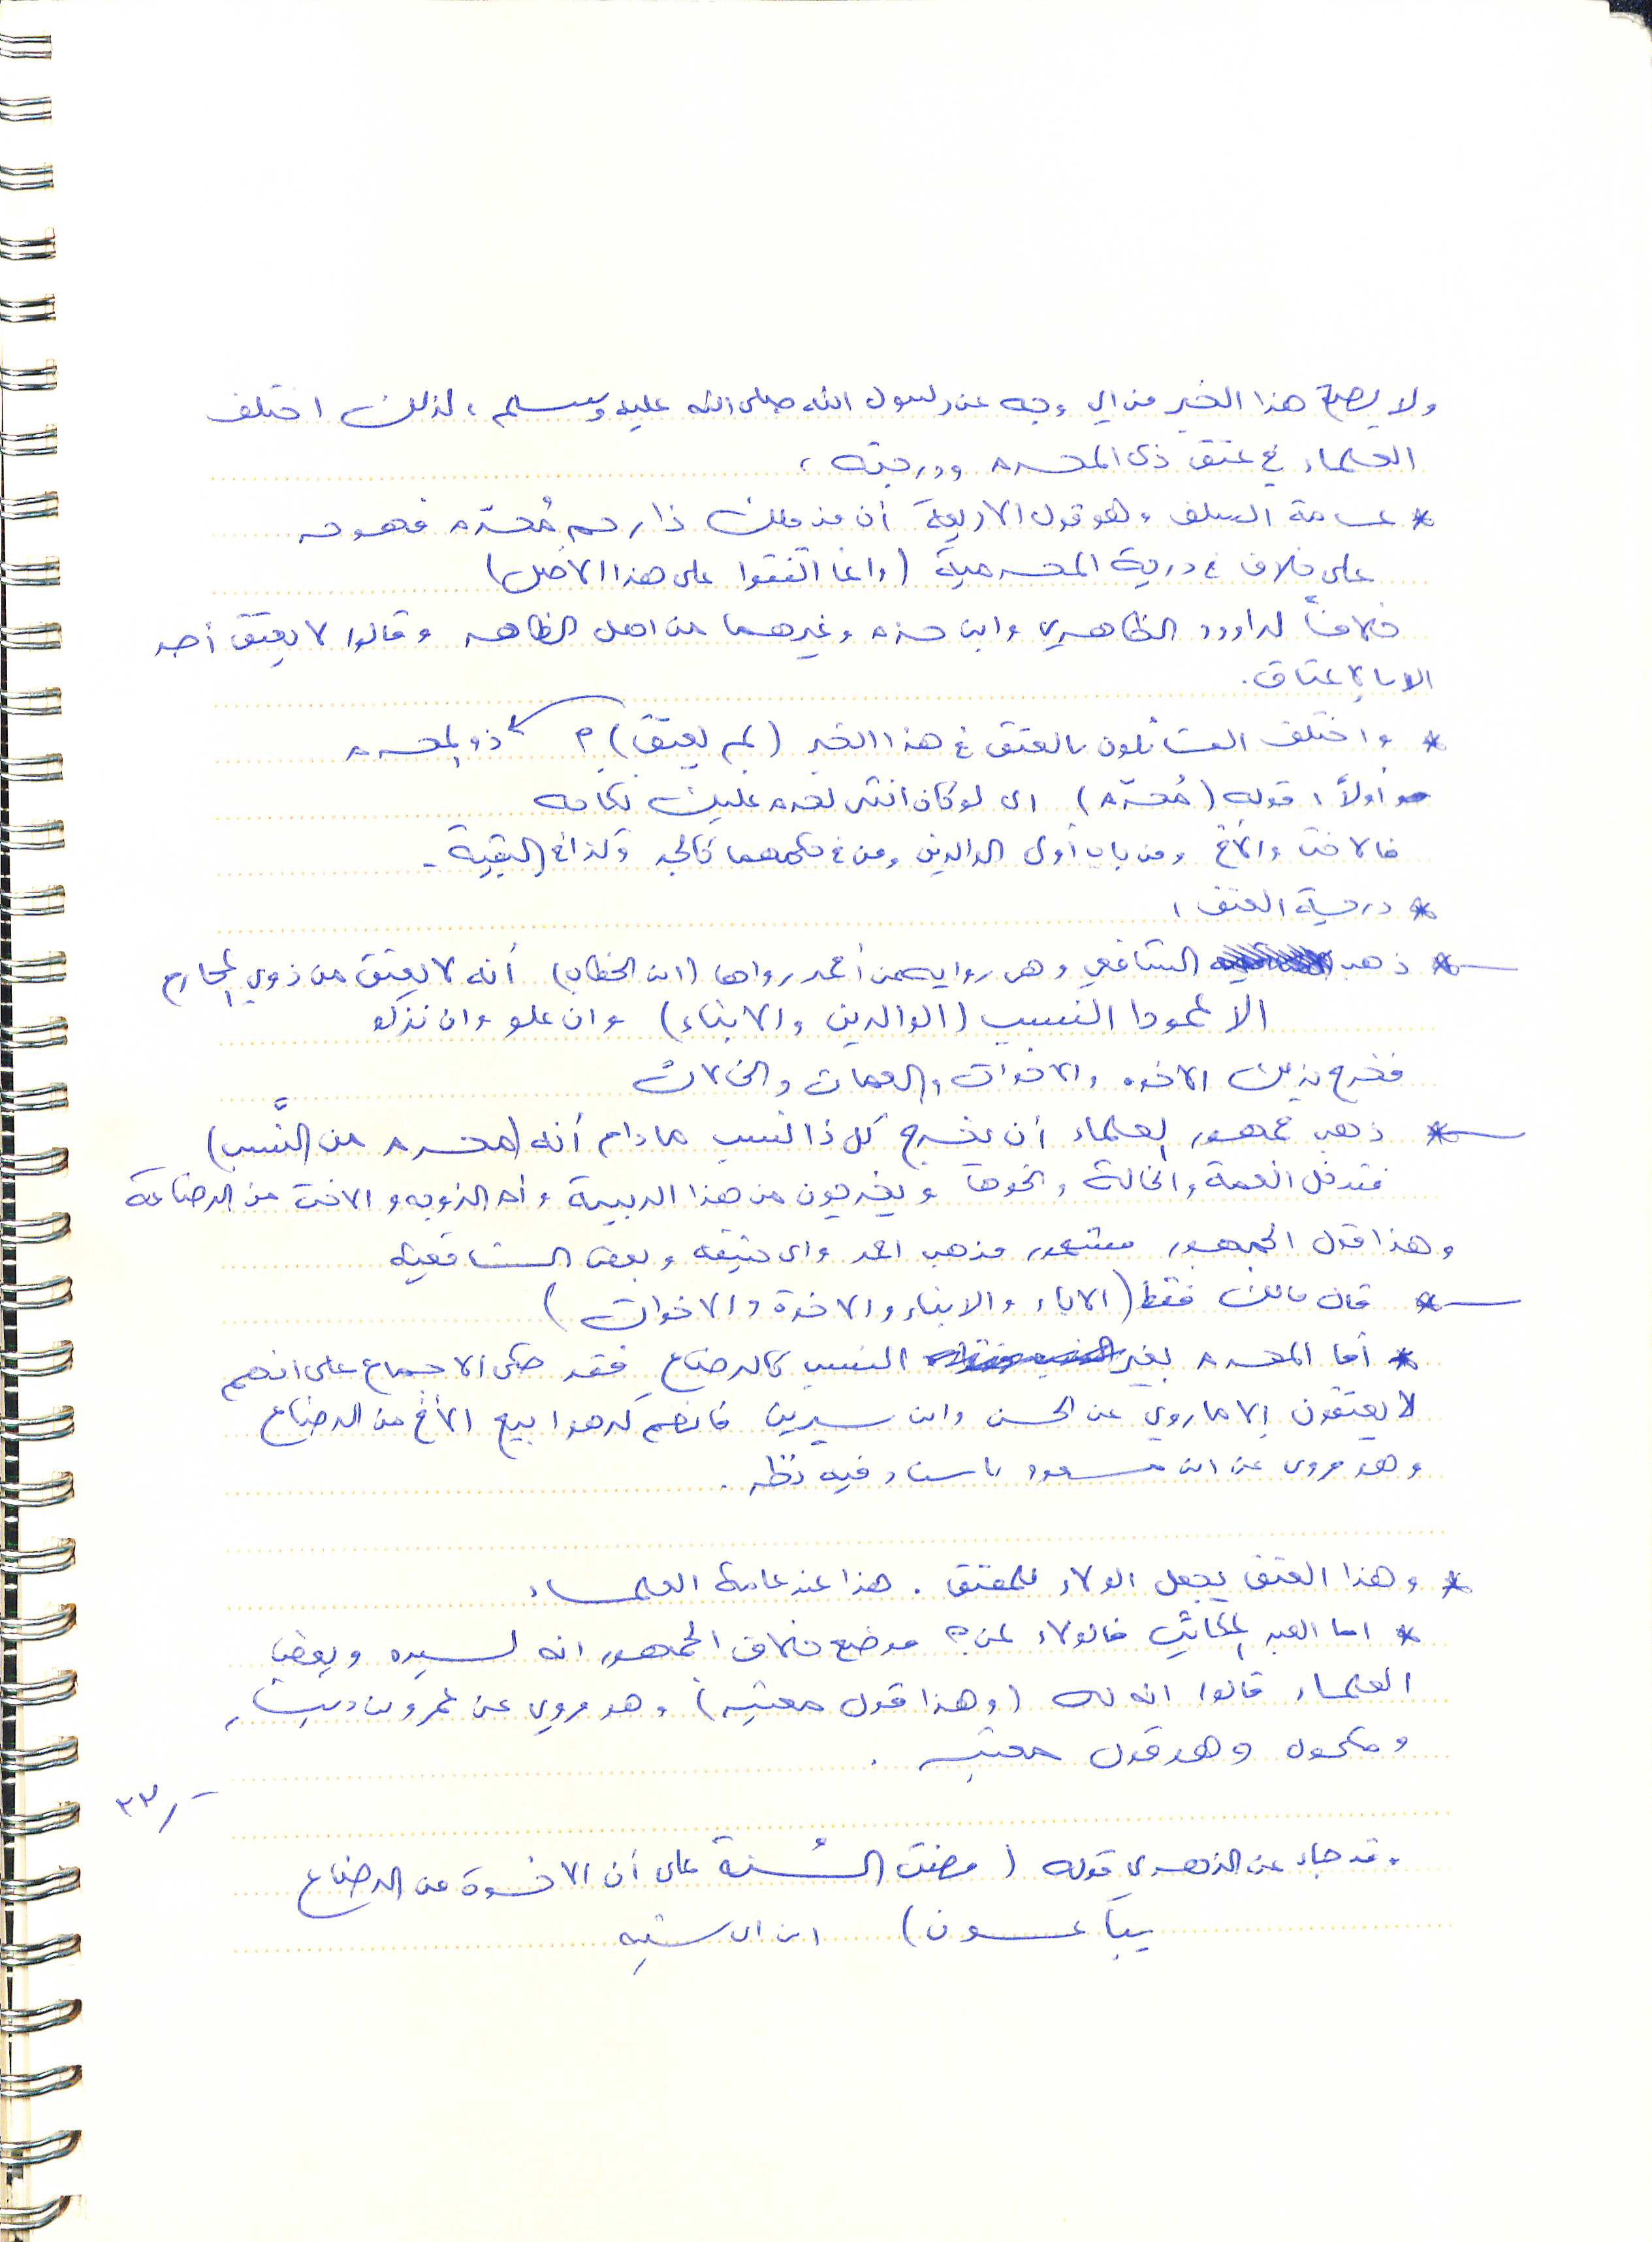 ولا يصح هذا الخبر من اي وجه عن رسول الله صلى الله عليه وسلم ، لذلك اختلف
العلماء في عتق ذي المحرم ودرجته ،
* عامة السلف وهو قول الاربعة أن من ملك ذا رحم مُحرّم فهو حر
على خلاف في درجة المحرمية (وانما اتفقوا على هذا الأصل)
خلافاً لداوود الظاهري وابن حزم وغيرهما من اهل الظاهر وقالوا لا يعتق أحد
الا باعتاق .
* واختلف القائلون بالعتق في هذا الخبر (بم يعتق) ؟ ذو المحرم
أولاً : قوله (مُحرّم) اي لو كان انثى لحرم عليك نكاحه
فالاخت والأخ ومن باب أولى الوالدين ومن في حكمهما كالجد وكذا في البقية -
* درجة العتق :
* ذهب الشافعي وهي رواية عن أحمد رواها (ابن الخطاب) أنه لا يعتق من ذوي المحارم
الا عمودا النسب (الوالدين والابناء) وان علو وان نزلو
فخرج بذلك الاخوه والاخوات والعمات والخالات
* ذهب جمهور العلماء أن يخرج كل ذا نسب ما دام أنه (محرم من النَّسب)
فتدخل العمة والخالة ونحوها ويخرجون من هذا الربيبة وأم الزوجه والاخت من الرضاعة
وهذا قول الجمهور مشهور مذهب احمد وابي حنيفه وبعض الشافعيه
* قال مالك فقط (الاباء والابناء والاخوة والاخوات)
* أما المحرم بغير النسب كالرضاع فقد حكي الاجماع على انهم
لا يعتقون إلا ما روي عن الحسن وابن سيرين فانهم كرهوا بيع الأخ من الرضاع
وهو مروي عن ابن مسعود باسناد فيه نظر .
* وهذا العتق يجعل الولاء للمعتق . هذا عند عامة العلماء
* اما العبد المكاتب فالولاء لمن ؟ موضع خلاف الجمهور انه لسيده وبعض
العلماء قالوا انه له (وهذا قول معتبر) وهو مروي عن عمرو بن دينار
ومكحول وهو قول معتبر .
٣٣
وقد جاء عن الزهري قوله (مضت السُنة على أن الاخوة من الرضاع
يباعون) ابن ابي شيبه